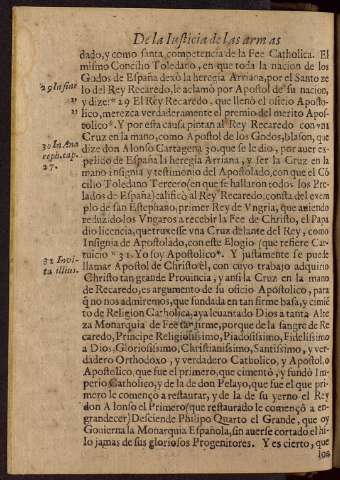 De la Iusticia de las armas
dado, y como santa competencia de la Fee Catholica. El
mismo Concilio Toledano, en que toda la nacion de los
Godos de España dexò la heregia Arriana, por el Santo ze
lo del Rey Recaredo, le aclamò por Apostol de su nacion,
y dize: * 29 El Rey Recaredo, que llenò el oficio Aposto-
lico, merezca verdaderamente el premio del merito Apos-
tolico*. Y por esta causa pintan al Rey Recaredo con vna
Cruz en la mano, como Apostol de los Godos, blason, que
dize don Alonso Cartagena 30. que se le diò, por auer ex-
pelido de España la heregia Arriana, y ser la Cruz en la
mano insignia y testimonio del Apostolado, con que el Cõ
cilio Toledano Tercero (en que se hallaron todos los Pre-
lados de España) calificò al Rey Recaredo, consta del exem
plo de san Estephano, primer Rey de Vngria, que auiendo
reduzido los Vngaros a recebir la Fee de Christo, el Papa
dio licencia, que truxesse vna Cruz delante del Rey, como
Insignia de Apostolado, con este Elogio (que refiere Car-
tuicio * 31. Yo soy Apostolico*. Y justamente se puede
llamar Apostol de Christo èl, con cuyo trabajo adquiriò
Christo tan grande Prouincia, y ansi la Cruz en la mano
de Recaredo, es argumento de su oficio Apostolico, para
q̃ no nos admiremos, que fundada en tan firme basa, y cimiẽ
to de Religion Catholica, aya leuantado Dios a tanta Alte
za Monarquia de Fee tan firme, porque de la sangre de Re
caredo, Principe Religiosissimo, Piadosissimo, Fidelissimo
a Dios, Gloriosissimo, Christianissimo, Santissimo, y ver-
dadero Orthodoxo, y verdadero Catholico, y Apostolo
Apostolico, que fue el primero, que cimentò, y fundò Im-
perio Catholico, y de la de don Pelayo, que fue el que pri-
mero le començo a restaurar, y de la de su yerno el Rey
don Alonso el Primero (que restaurado le començò a en-
grandecer) Desciende Philipo Quarto el Grande, que oy
Gouierna la Monarquia Española, sin auerse cortado el hi-
lo jamas de sus gloriosos Progenitores. Y es cierto, que
los
29 In fine
30 In Ana
ceph. cap.
27.
31 In vi-
ta illius.